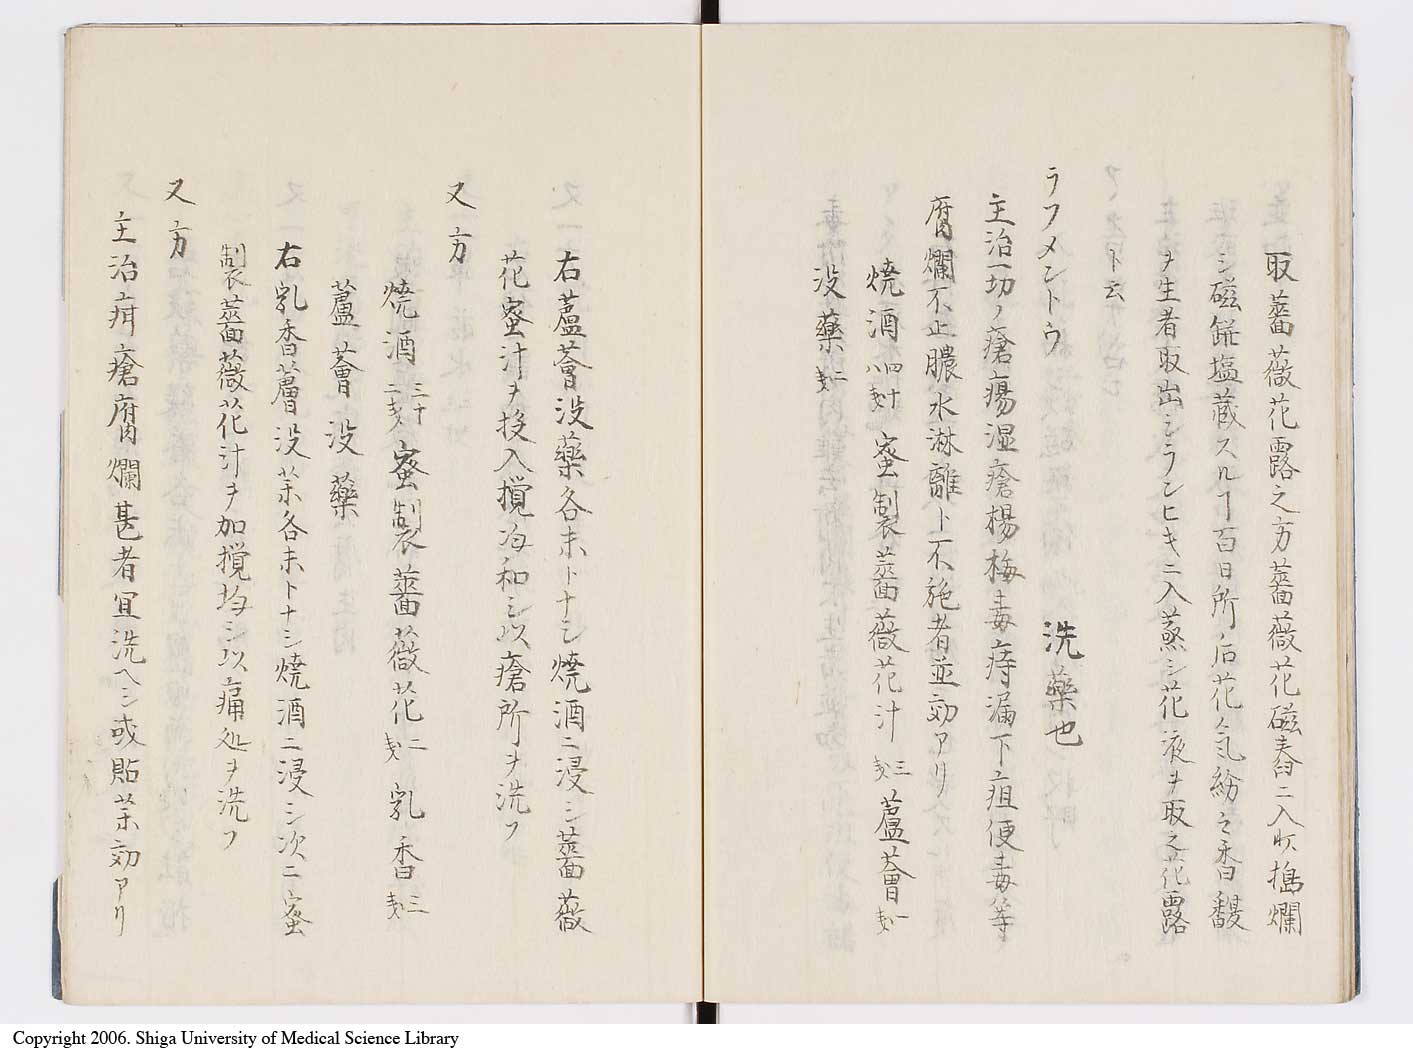 取薔薇花露之方薔薇花磁舂ニ入テ搗爛
シ磁餅塩蔵スルヿ百日所后花気紛々香馥
ヲ生者取出シランヒキニ入蒸シ花液ヲ取之花露
ト云
ラフメントウ 洗藥也
主治一切ノ瘡瘍湿瘡楊梅毒痔漏下疽便毒等
腐爛不止膿水淋離ト不施者並効アリ
焼酒 四十八戔 蜜製薔薇花汁 三戔 蘆薈 一戔
没藥 二戔
右蘆薈没藥各末トナシ焼酒ニ浸シ薔薇
花蜜汁ヲ投入撹均和シ以瘡所ヲ洗フ
又方
焼酒 三十二戔 蜜製薔薇花 二戔 乳香 三戔
蘆薈 没藥
右乳香薈没茱各末トナシ焼酒ニ浸シ次ニ蜜
製薔薇花汁ヲ加撹均シ以痛処ヲ洗フ
又方
主治疳瘡腐爛甚者宜洗ヘシ或貼茱効アリ
Copyright 2006. Shiga University of Medical Science Library